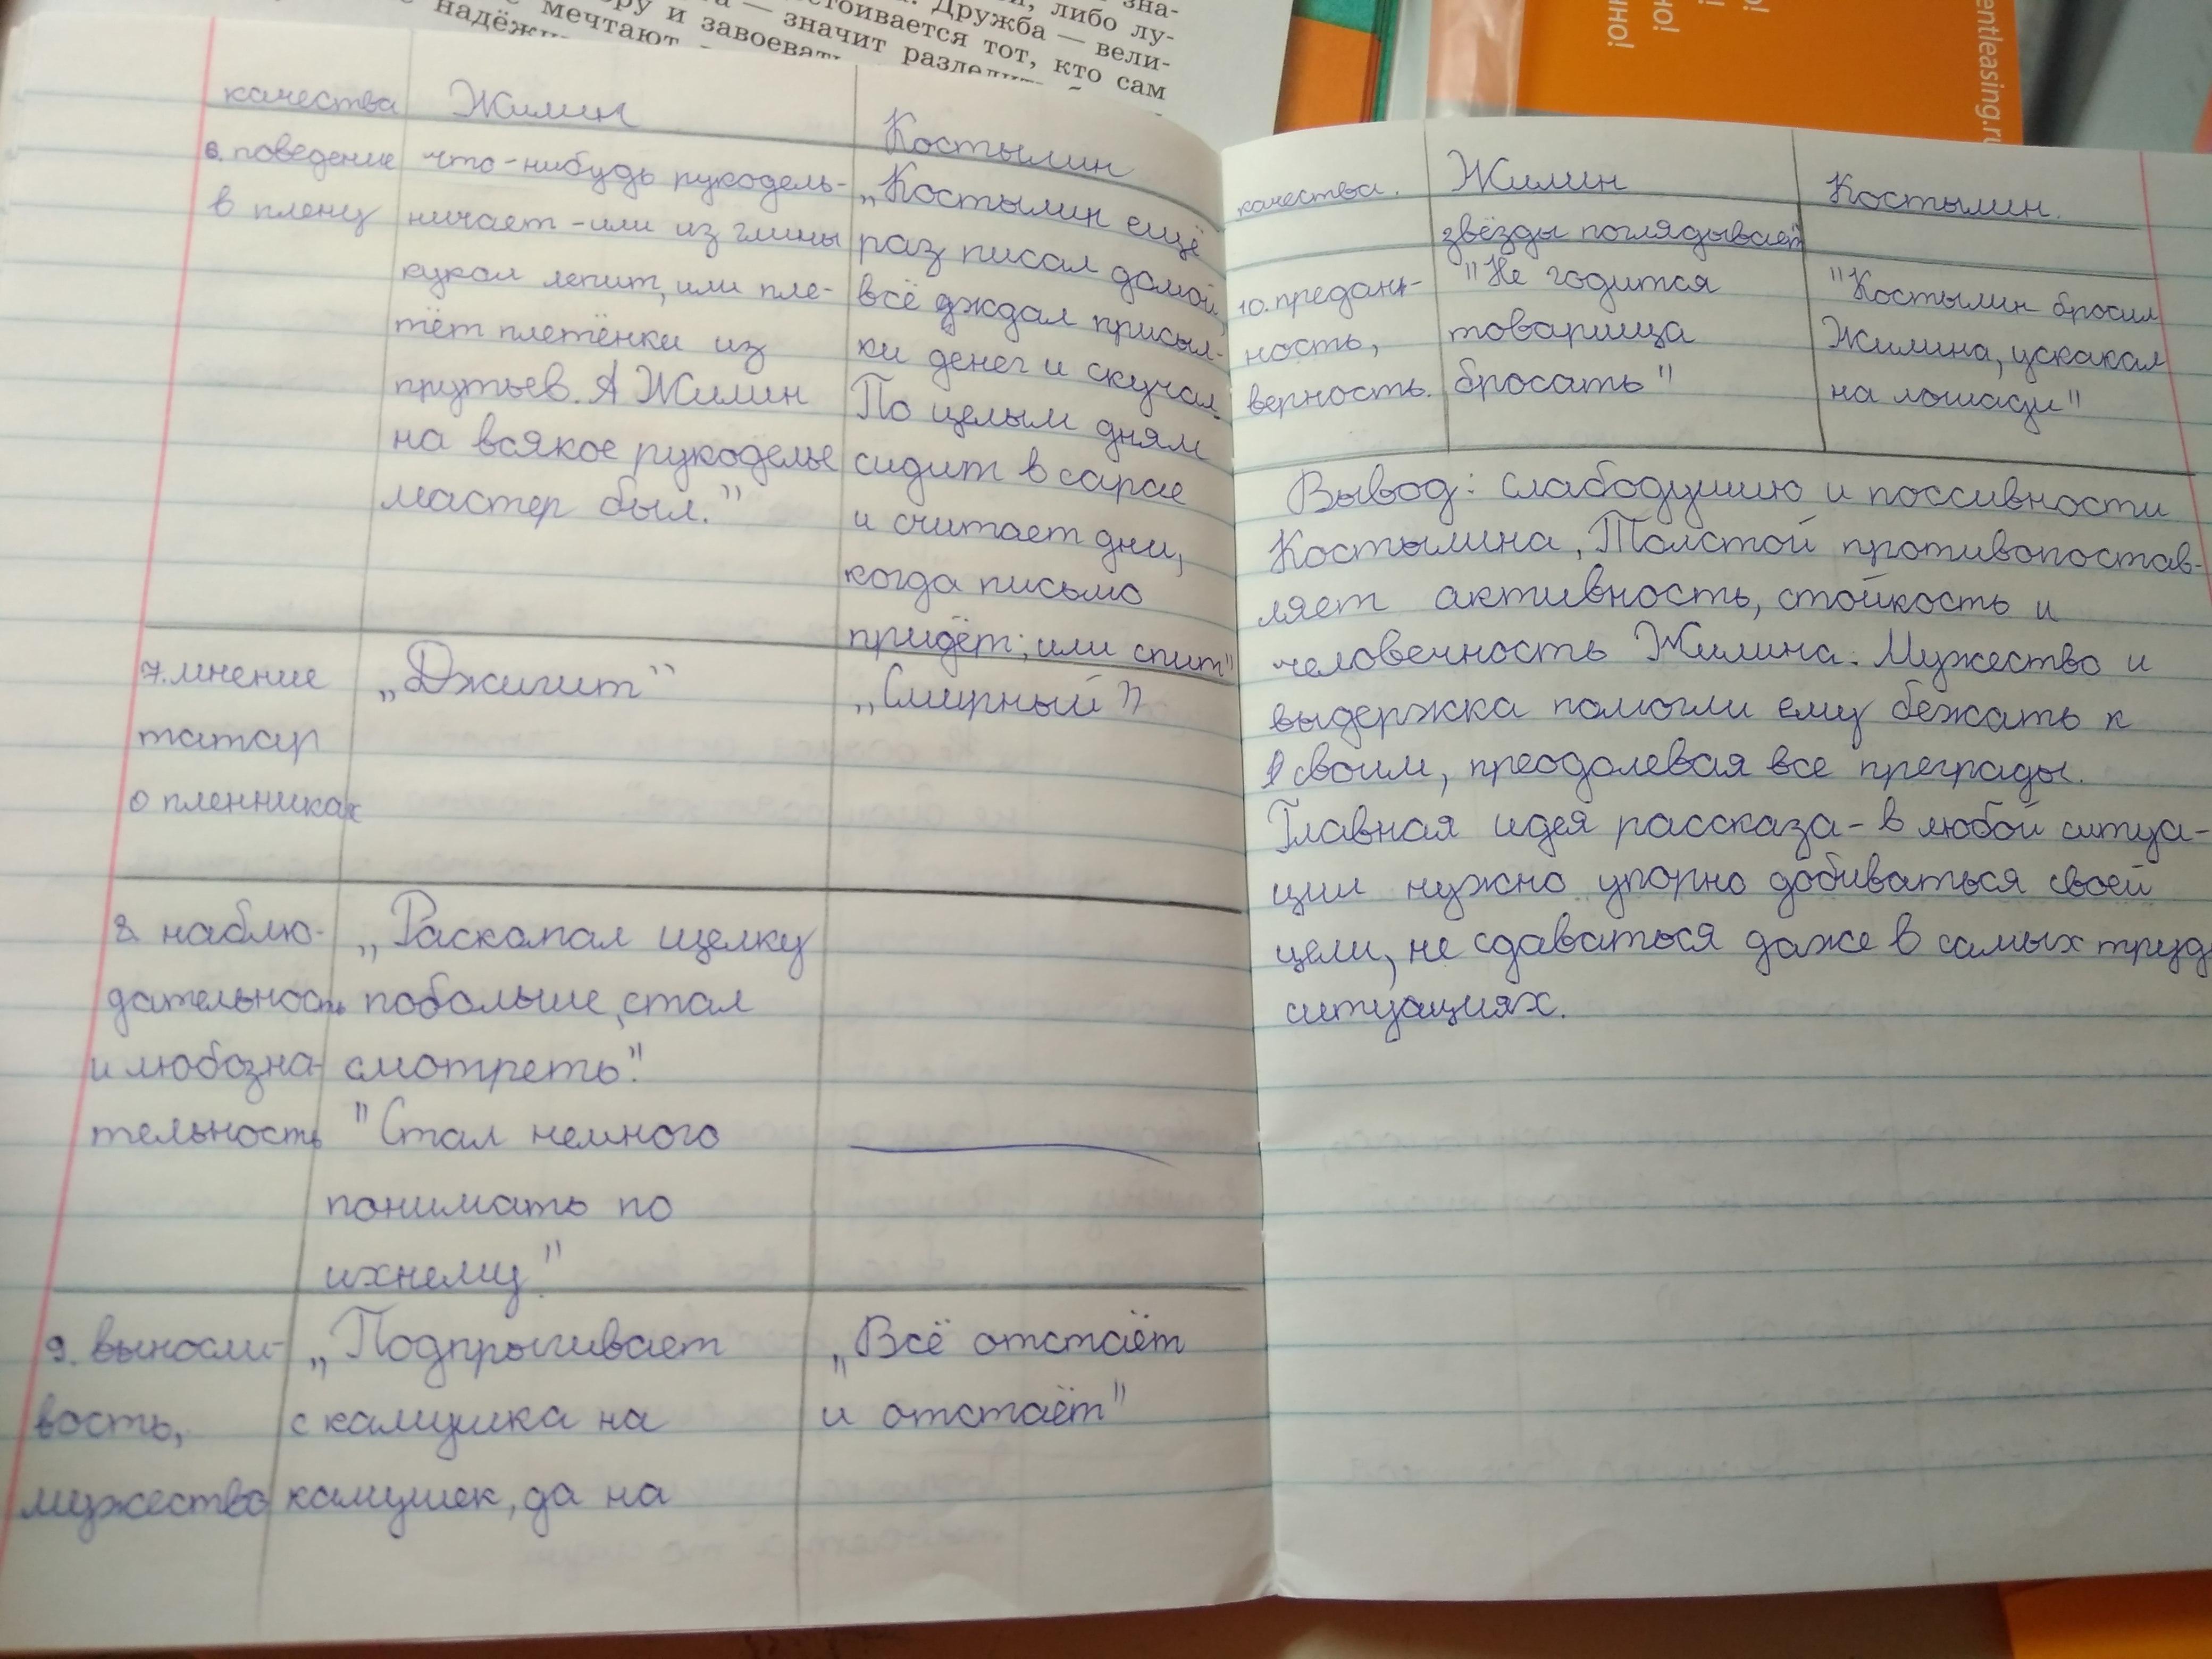 зна-
либо лу-
Дружба — вели-
стоивается тот, кто сам
— значит разделить
и завоевать
мечтают
надёжн
нно!
но!
entleasing.ru
качества Жилин Костылин
6. поведение
в плену
что-нибудь рукодель-
ничает - или из глины
кукол лепит, или пле-
тёт плетёнки из
прутьев. А Жилин
на всякое рукоделье
мастер был."
„Костылин ещё
раз писал домой,
всё дждал присыл-
ки денег и скучал.
По целым дням
сидит в сарае
и считает дни,
когда письмо
придёт; или спит"
7. мнение
татар
о пленниках
„Джигит"
„Смирный"
8. наблю-
дательность
и любозна-
тельность
„Раскопал щелку
побольше, стал
смотреть."
"Стал немного
понимать по
ихнему."
9. выносли-
вость,
мужество
„Подпрыгивает
с камушка на
камушек, да на
„Всё отстаёт
и отстаёт"
качества. Жилин Костылин.
звёзды поглядывает
10. предан-
ность,
верность.
"Не годится
товарища
бросать"
"Костылин бросил
Жилина, ускакал
на лошади"
Вывод: слабодушию и поссивности
Костылина, Толстой противопостав-
ляет активность, стойкость и
человечность Жилина. Мужество и
выдержка помогли ему бежать к
своим, преодолевая все преграды.
Главная идея рассказа - в любой ситуа-
ции нужно упорно добиваться своей
цели, не сдаваться даже в самых труд
ситуациях.